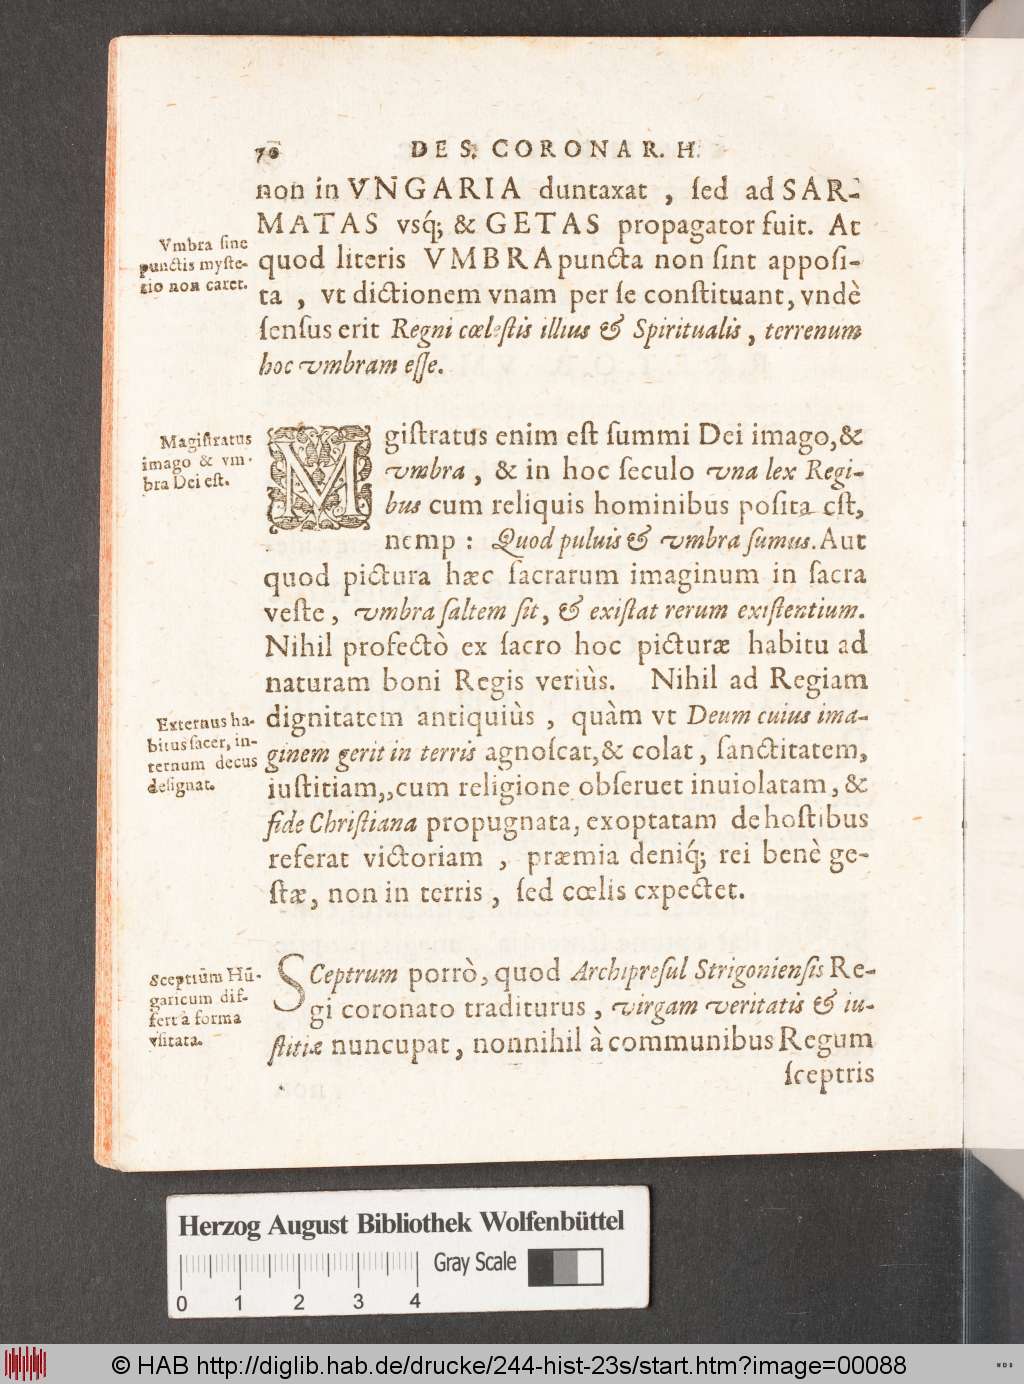 70 DE S. CORONA R. H.
non in VNGARIA duntaxat , ſed ad SAR-
MATAS vsq́; & GETAS propagator fuit. At
Vmbra ſine
punctis myſte-
rio non caret.
quod literis VMBRA puncta non ſint appoſi-
ta , vt dictionem vnam per ſe conſtituant, vndè
ſenſus erit Regni cœleſtis illius & Spiritualis, terrenum
hoc vmbram eſſe.
Magiſtratus
imago & vm-
bra Dei eſt.
Magiſtratus enim eſt ſummi Dei imago,&
vmbra , & in hoc ſeculo vna lex Regi-
bus cum reliquis hominibus poſita eſt,
nemp : Quod puluis & vmbra ſumus. Aut
quod pictura hæc ſacrarum imaginum in ſacra
veſte, vmbra ſaltem ſit, & exiſtat rerum exiſtentium.
Nihil profectò ex ſacro hoc picturæ habitu ad
naturam boni Regis veriùs. Nihil ad Regiam
Externus ha-
bitus ſacer, in-
ternum decus
deſignat.
dignitatem antiquiùs , quàm vt Deum cuius ima-
ginem gerit in terris agnoſcat,& colat, ſanctitatem,
iuſtitiam,,cum religione obſeruet inuiolatam, &
fide Chriſtiana propugnata, exoptatam de hoſtibus
referat victoriam , præmia deniq́; rei benè ge-
ſtæ, non in terris , ſed cœlis expectet.
Sceptrũm Hũ-
garicum dif-
fert à forma
vſitata.
SCeptrum porrò, quod Archipreſul Strigonienſis Re-
gi coronato traditurus , virgam veritatis & iu-
ſtitiæ nuncupat, nonnihil à communibus Regum
ſceptris
Herzog August Bibliothek Wolfenbüttel
Gray Scale
0 1 2 3 4
© HAB http://diglib.hab.de/drucke/244-hist-23s/start.htm?image=00088